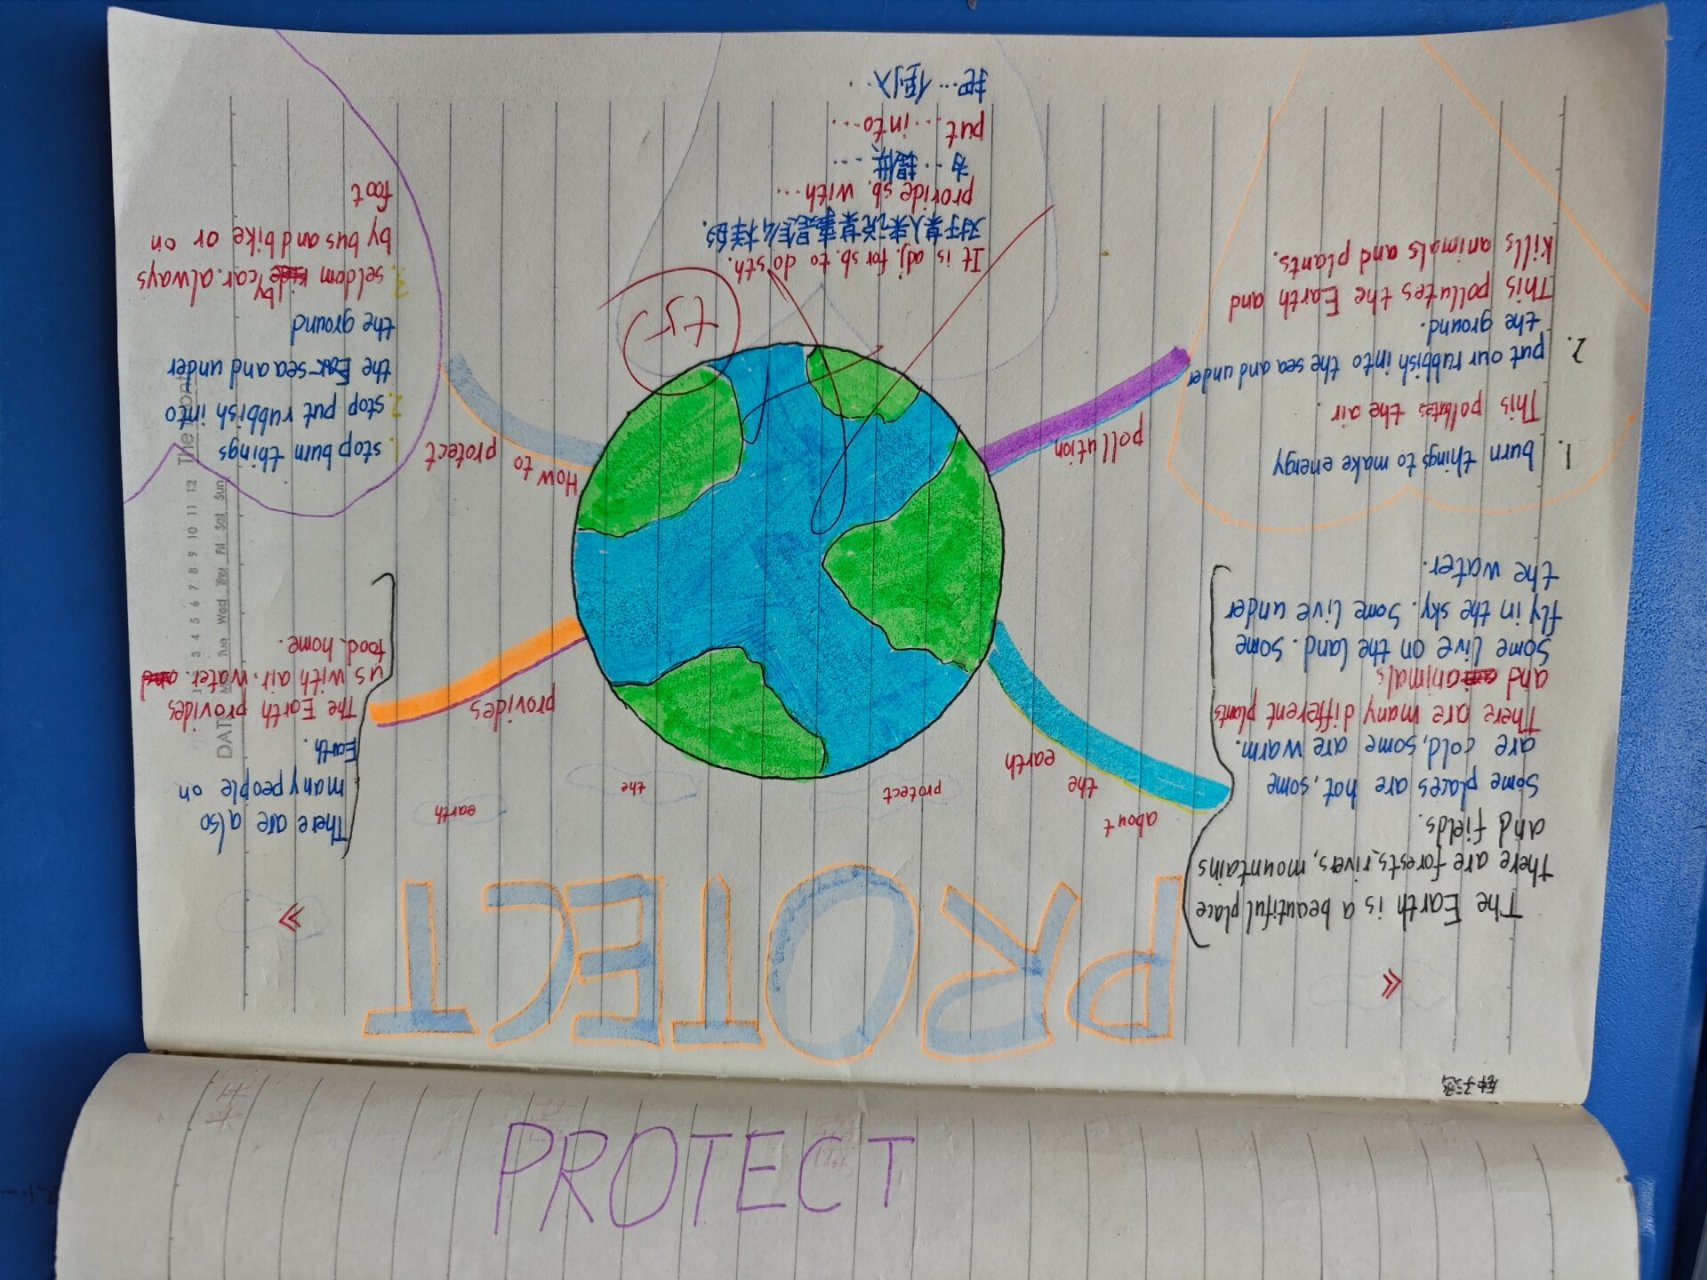 PROTECT
The Earth is a beautiful place
there are forests, rivers, mountains
and fields.
some places are hot, some
are cold, some are warm.
There are many different plants
and animals
some live on the land. some
fly in the sky. some live under
the water.
about
the
earth
protect
the
earth
provides
There are also
many people on
Earth.
The Earth provides
us with air. water.
food. home.
pollution
1. burn things to make energy
This pollutes the air.
2. put our rubbish into the sea and under
the ground.
This pollutes the Earth and
kills animals and plants.
How to
protect
1. stop burn things
2. stop put rubbish into
the sea and under
the ground
3. seldom by car. always
by bus and bike or on
foot
It is adj. for sb. to do sth.
对于某人来说某事是怎么样的.
provide sb. with...
为...提供...
put...into...
把...倒入...
DATE
3 4 5 6 7 8 9 10 11 12
Tue Wed Thur Fri Sat Sun
PROTECT